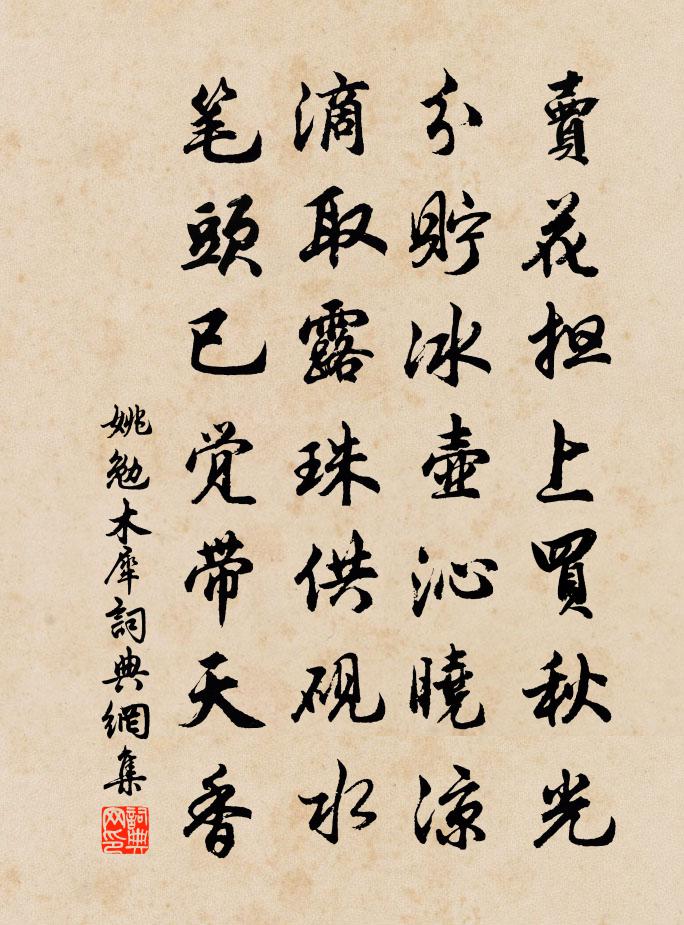 賣花担上買秋光
分貯冰壺沁曉涼
滴取露珠供硯水
笔頭已覚帯天香
姚勉木犀詞典網集
詞典网印